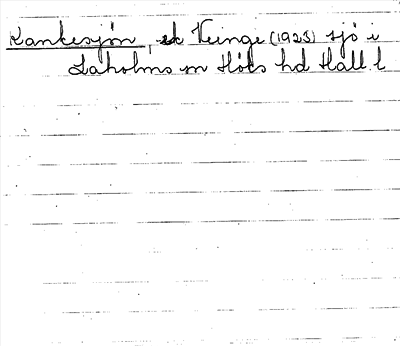 Kankesjön, ek Veinge (1925) sjö i
Laholms sn Höks hd Hall. l